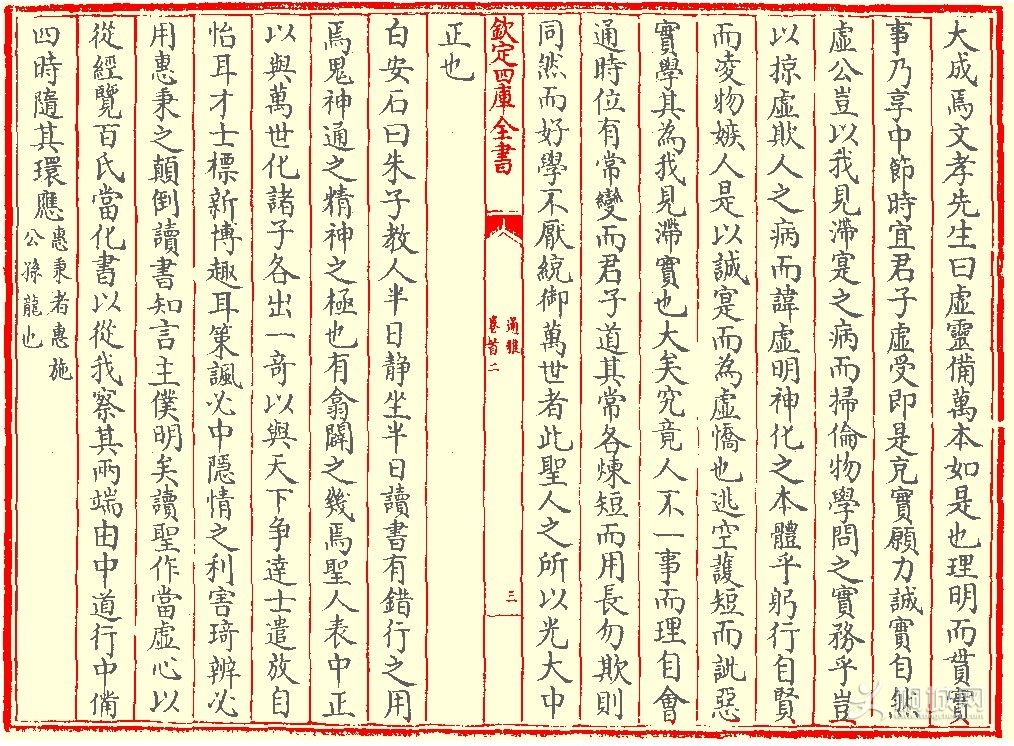 大成焉文孝先生曰虛靈備萬本如是也理明而貫實
事乃享中節時宜君子虛受即是充實願力誠實自然
虛公豈以我見滯寔之病而掃倫物學問之實務乎豈
以掠虛欺人之病而諱虛明神化之本體乎躬行自賢
而凌物嫉人是以誠寔而為虛憍也逃空護短而訿惡
實學其為我見滯實也大矣究竟人不一事而理自會
通時位有常變而君子道其常各煉短而用長勿欺則
同然而好學不厭統御萬世者此聖人之所以光大中
正也
欽定四庫全書
通雅
卷首二
三
白安石曰朱子教人半日靜坐半日讀書有錯行之用
焉鬼神通之精神之極也有翕闢之幾焉聖人表中正
以與萬世化諸子各出一奇以與天下爭達士遣放自
怡耳才士標新博趣耳策諷必中隱情之利害琦辨必
用惠秉之顛倒讀書知言主僕明矣讀聖作當虛心以
從經覽百氏當化書以從我察其兩端由中道行中備
四時隨其環應惠秉者惠施
公孫龍也